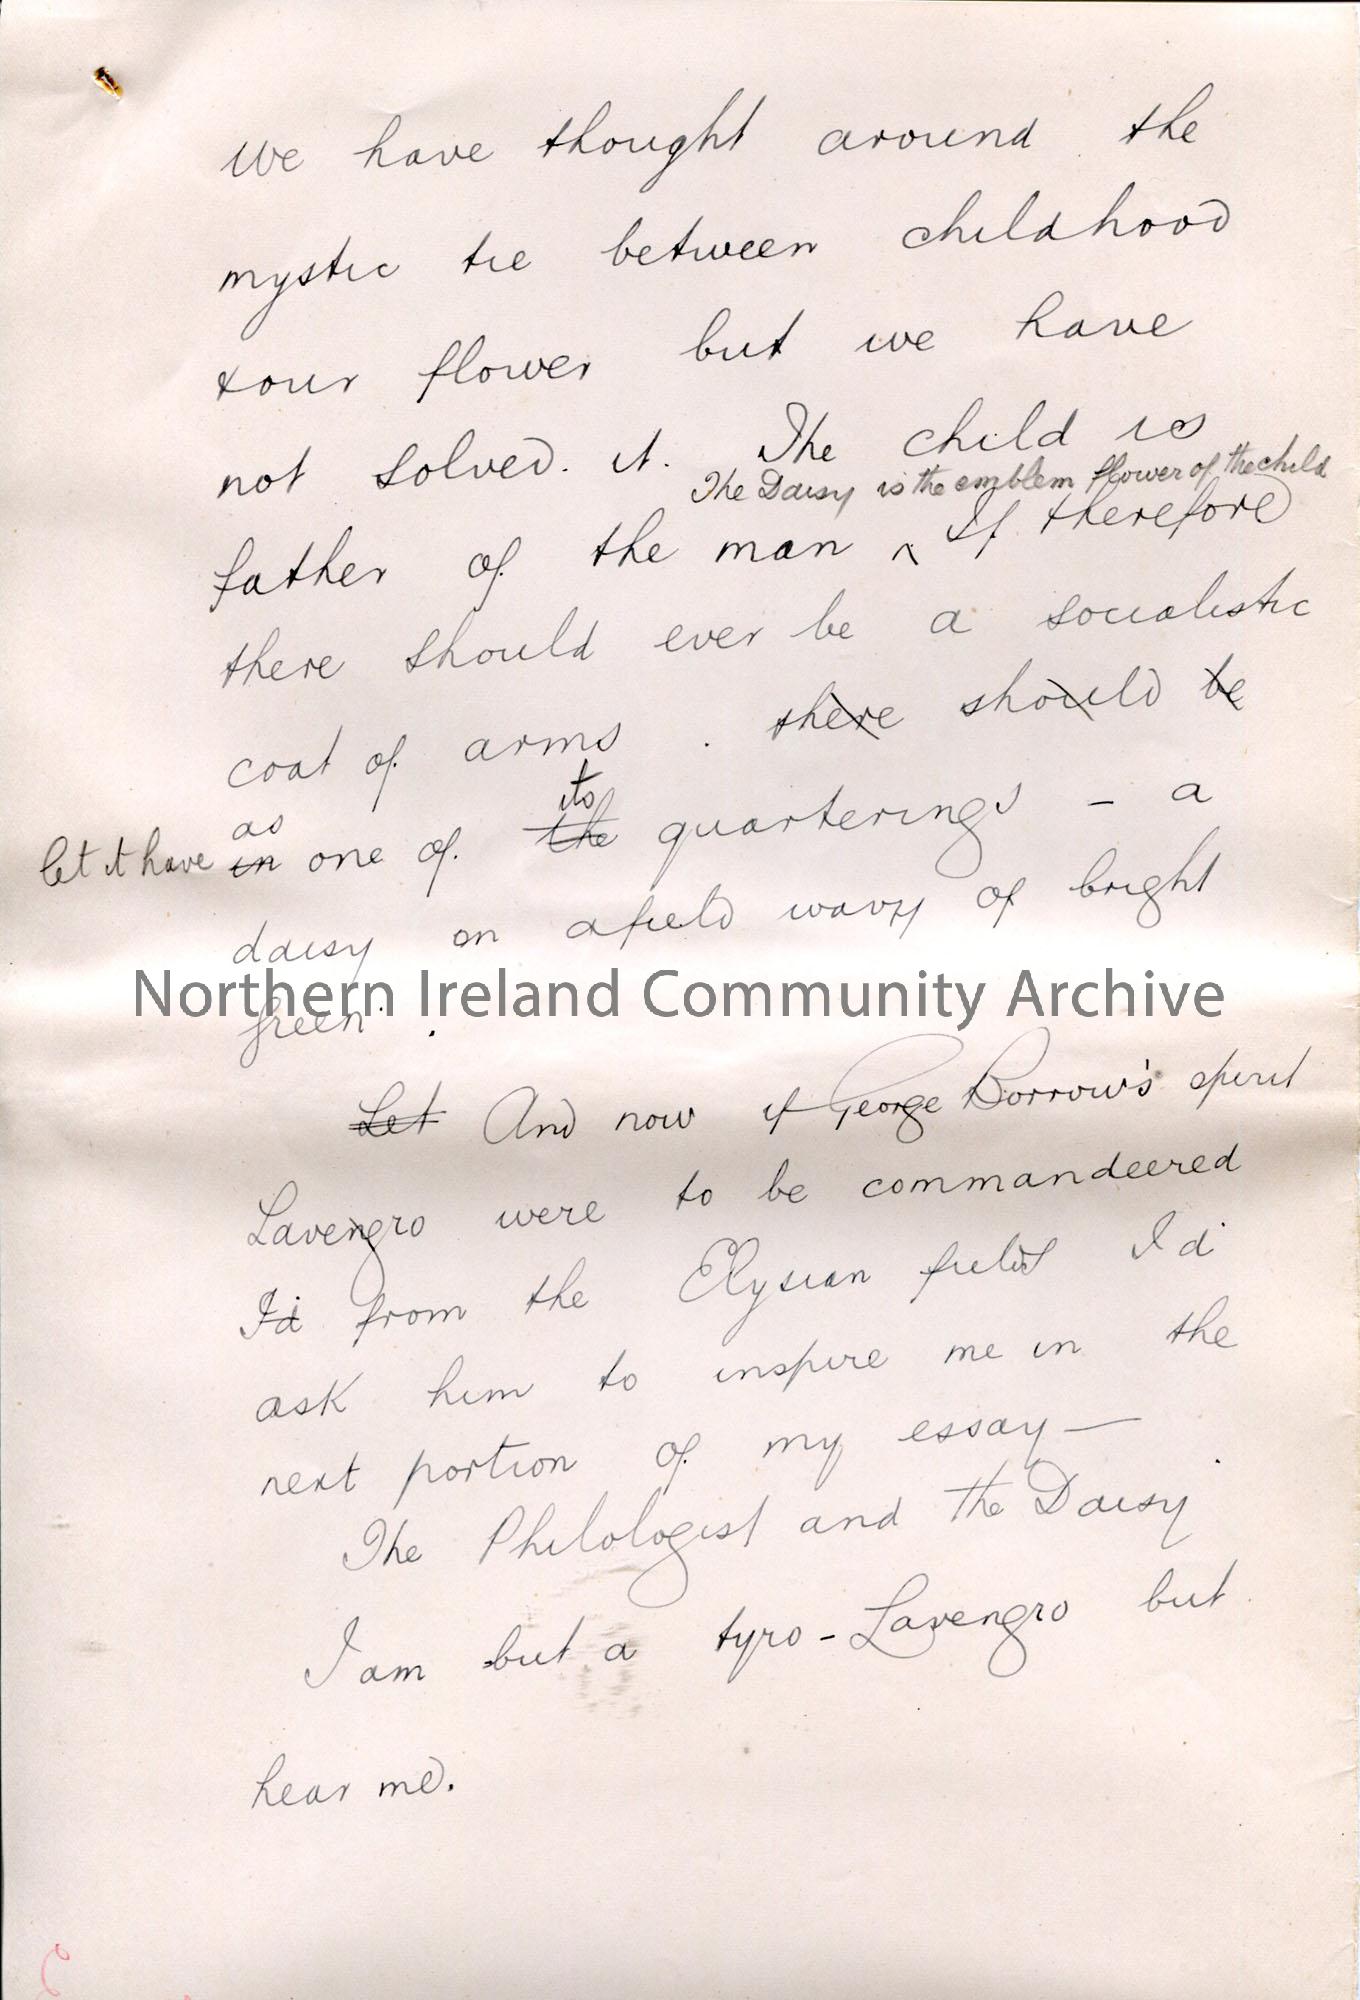 We have thought around the
mystic tie between childhood
& our flower but we have
not solved. it. The child is
The Daisy is the emblem flower of the child
father of the man ^ If therefore
there should ever be a socialistic
coat of arms . there should be
as its
let it have in one of. the quarterings - a
daisy on a field wavy of bright
green .
Northern Ireland Community Archive
Let And now if George Borrow's spirit
Lavengro were to be commandeered
I'd from the Elysian fields I'd
ask him to inspire me in the
next portion of my essay —
The Philologist and the Daisy
I am but a tyro - Lavengro but
hear me.